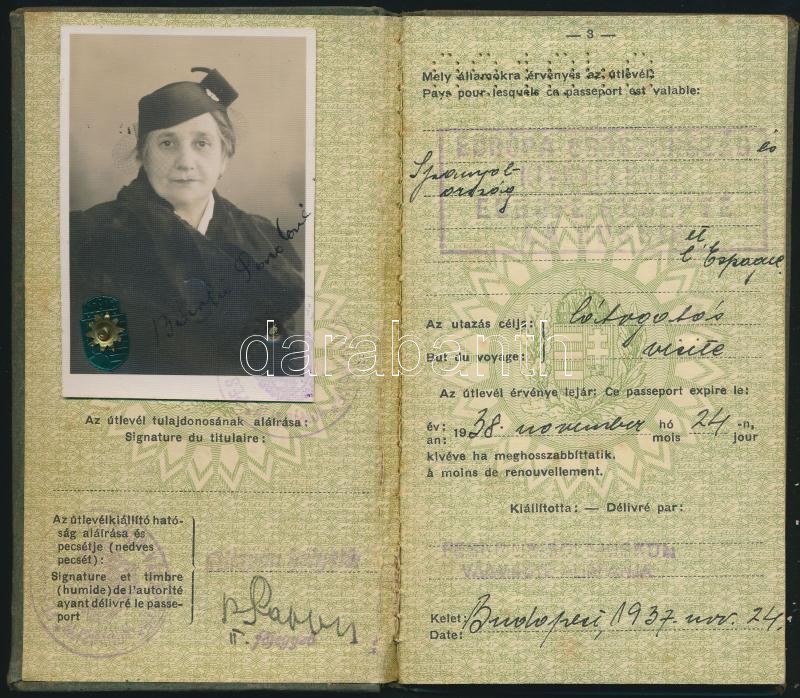 Az útlevél tulajdonosának aláírása:
Signature du titulaire:
Az útlevélkiállító ható-
ság aláírása és
pecsétje (nedves
pecsét):
Signature et timbre
(humide) de l'autorité
ayant délivré le passe-
port
II.
— 3 —
Mely államokra érvényes az útlevél:
Pays pour lesquels ce passeport est valable:
EUROPA
és
Spanyol-
ország
EUROPE
et
l'Espagne
Az utazás célja: látogatás
But du voyage: visite
Az útlevél érvénye lejár: Ce passeport expire le:
év: 1938. november hó 24 -n,
an: mois jour
kivéve ha meghosszabbíttatik.
à moins de renouvellement.
Kiállította: — Délivré par:
Kelet: Budapest, 1937. nov. 24.
Date:
darabanth